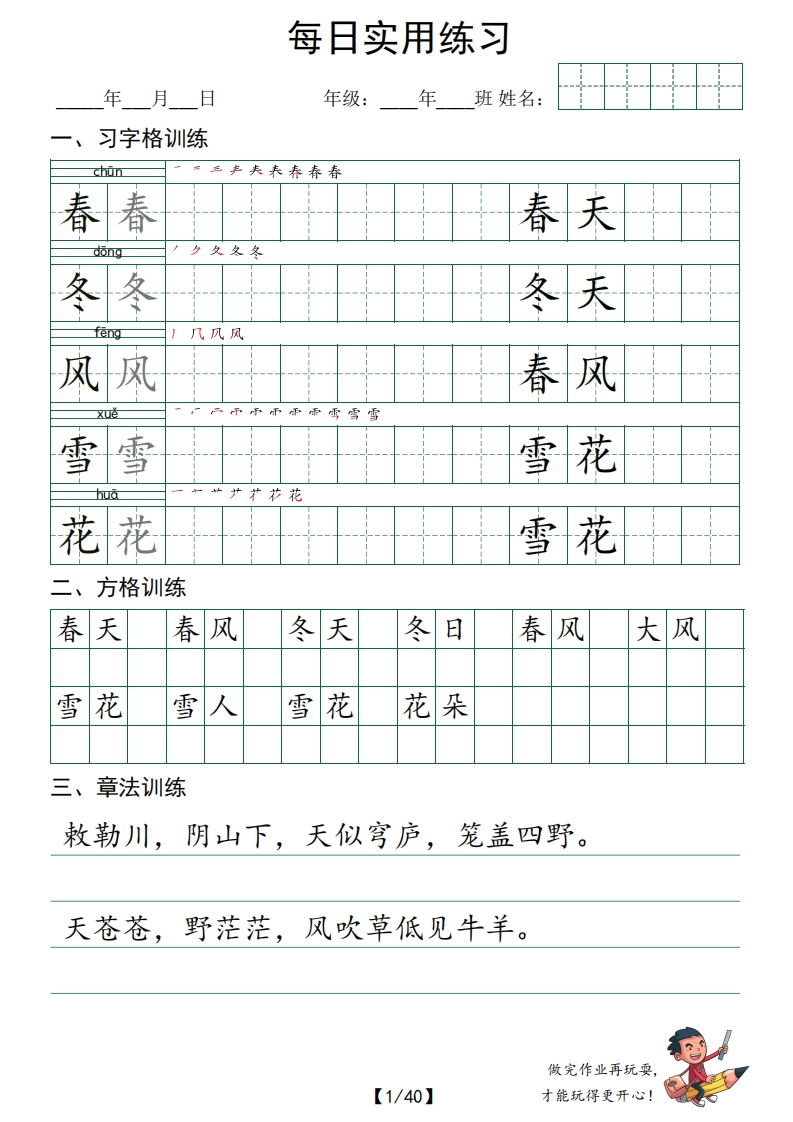 每日实用练习
_____年___月___日 年级：____年____班 姓名：
一、习字格训练
chūn
春 春 春 天
dōng
冬 冬 冬 天
fēng
风 风 春 风
xuě
雪 雪 雪 花
huā
花 花 雪 花
二、方格训练
春天 春风 冬天 冬日 春风 大风
雪花 雪人 雪花 花朵
三、章法训练
敕勒川，阴山下，天似穹庐，笼盖四野。
天苍苍，野茫茫，风吹草低见牛羊。
做完作业再玩耍，
才能玩得更开心！
【1/40】